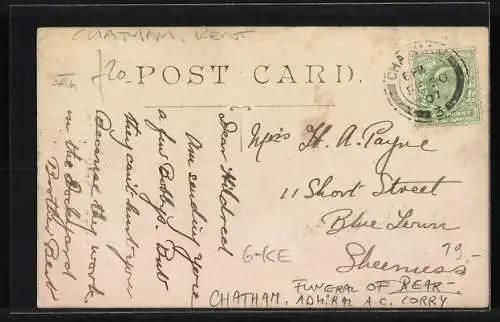 CHATHAM. KENT
/20-
POST CARD.
CHATHAM
07
Dear Mildred
Am sending you
a few Bobbys. But
they can't hurt you
Because they work
in the Dockyard
Brother Bert
Miss H. A. Payne
11 Short Street
Blue Town
Sheerness
79-
G-KE
FUNERAL OF REAR-
CHATHAM. ADMIRAL A.C. CORRY